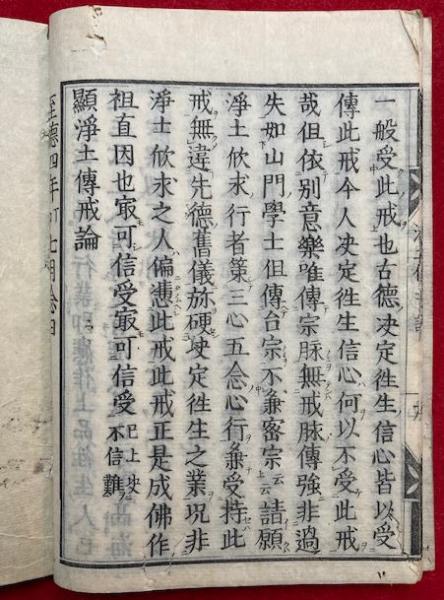 一般受此戒也古德决定徃生信心皆以受
傳此戒今人决定徃生信心何以不受此戒
哉但依別意樂唯傳宗脉無戒脉傳強非過
失如山門學士但傳台宗不兼密宗云云請願
淨土欣求行者策三心五念心行兼受持此
戒無違先德舊儀旀硬决定徃生之業况非
淨土欣求之人偏憑此戒此戒正是成佛作
祖直因也㝡可信受㝡可信受已上决不信難
顯淨土傳戒論
至德四年丁